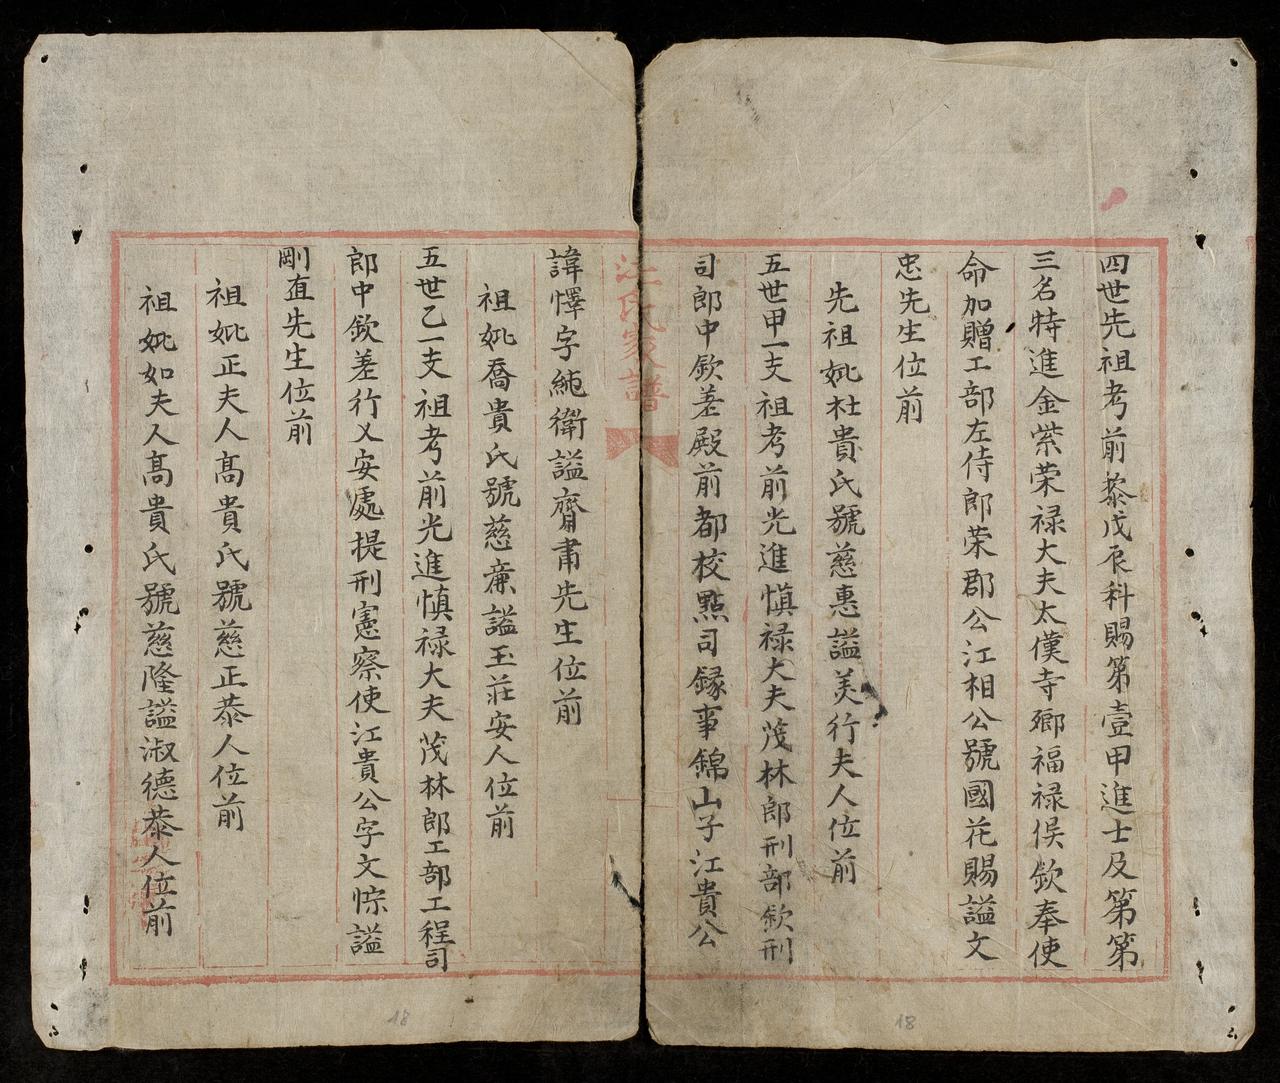 四世先祖考前黎戊辰科賜第壹甲進士及第第
三名特進金紫荣禄大夫太僕寺鄉福禄侯欽奉使
命加贈工部左侍郎荣郡公江相公號國花賜謚文
忠先生位前
先祖妣杜貴氏號慈惠謚美行夫人位前
五世甲一支祖考前光進慎禄大夫茂林郎刑部欽刑
司郎中欽差殿前都校點司錄事錦山子江貴公
江氏家譜
諱懌字純衛謚齋肅先生位前
祖妣喬貴氏號慈廉謚玉莊安人位前
五世乙一支祖考前光進慎禄大夫茂林郎工部工程司
郎中欽差行乂安處提刑憲察使江貴公字文悰謚
剛直先生位前
祖妣正夫人髙貴氏號慈正恭人位前
祖妣如夫人髙貴氏號慈隆謚淑德恭人位前
18
18